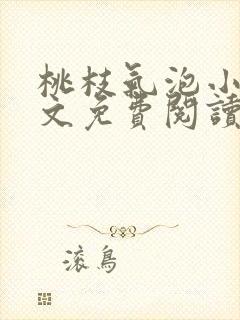 桃枝氣泡小
文免費閱讀
滾鳥